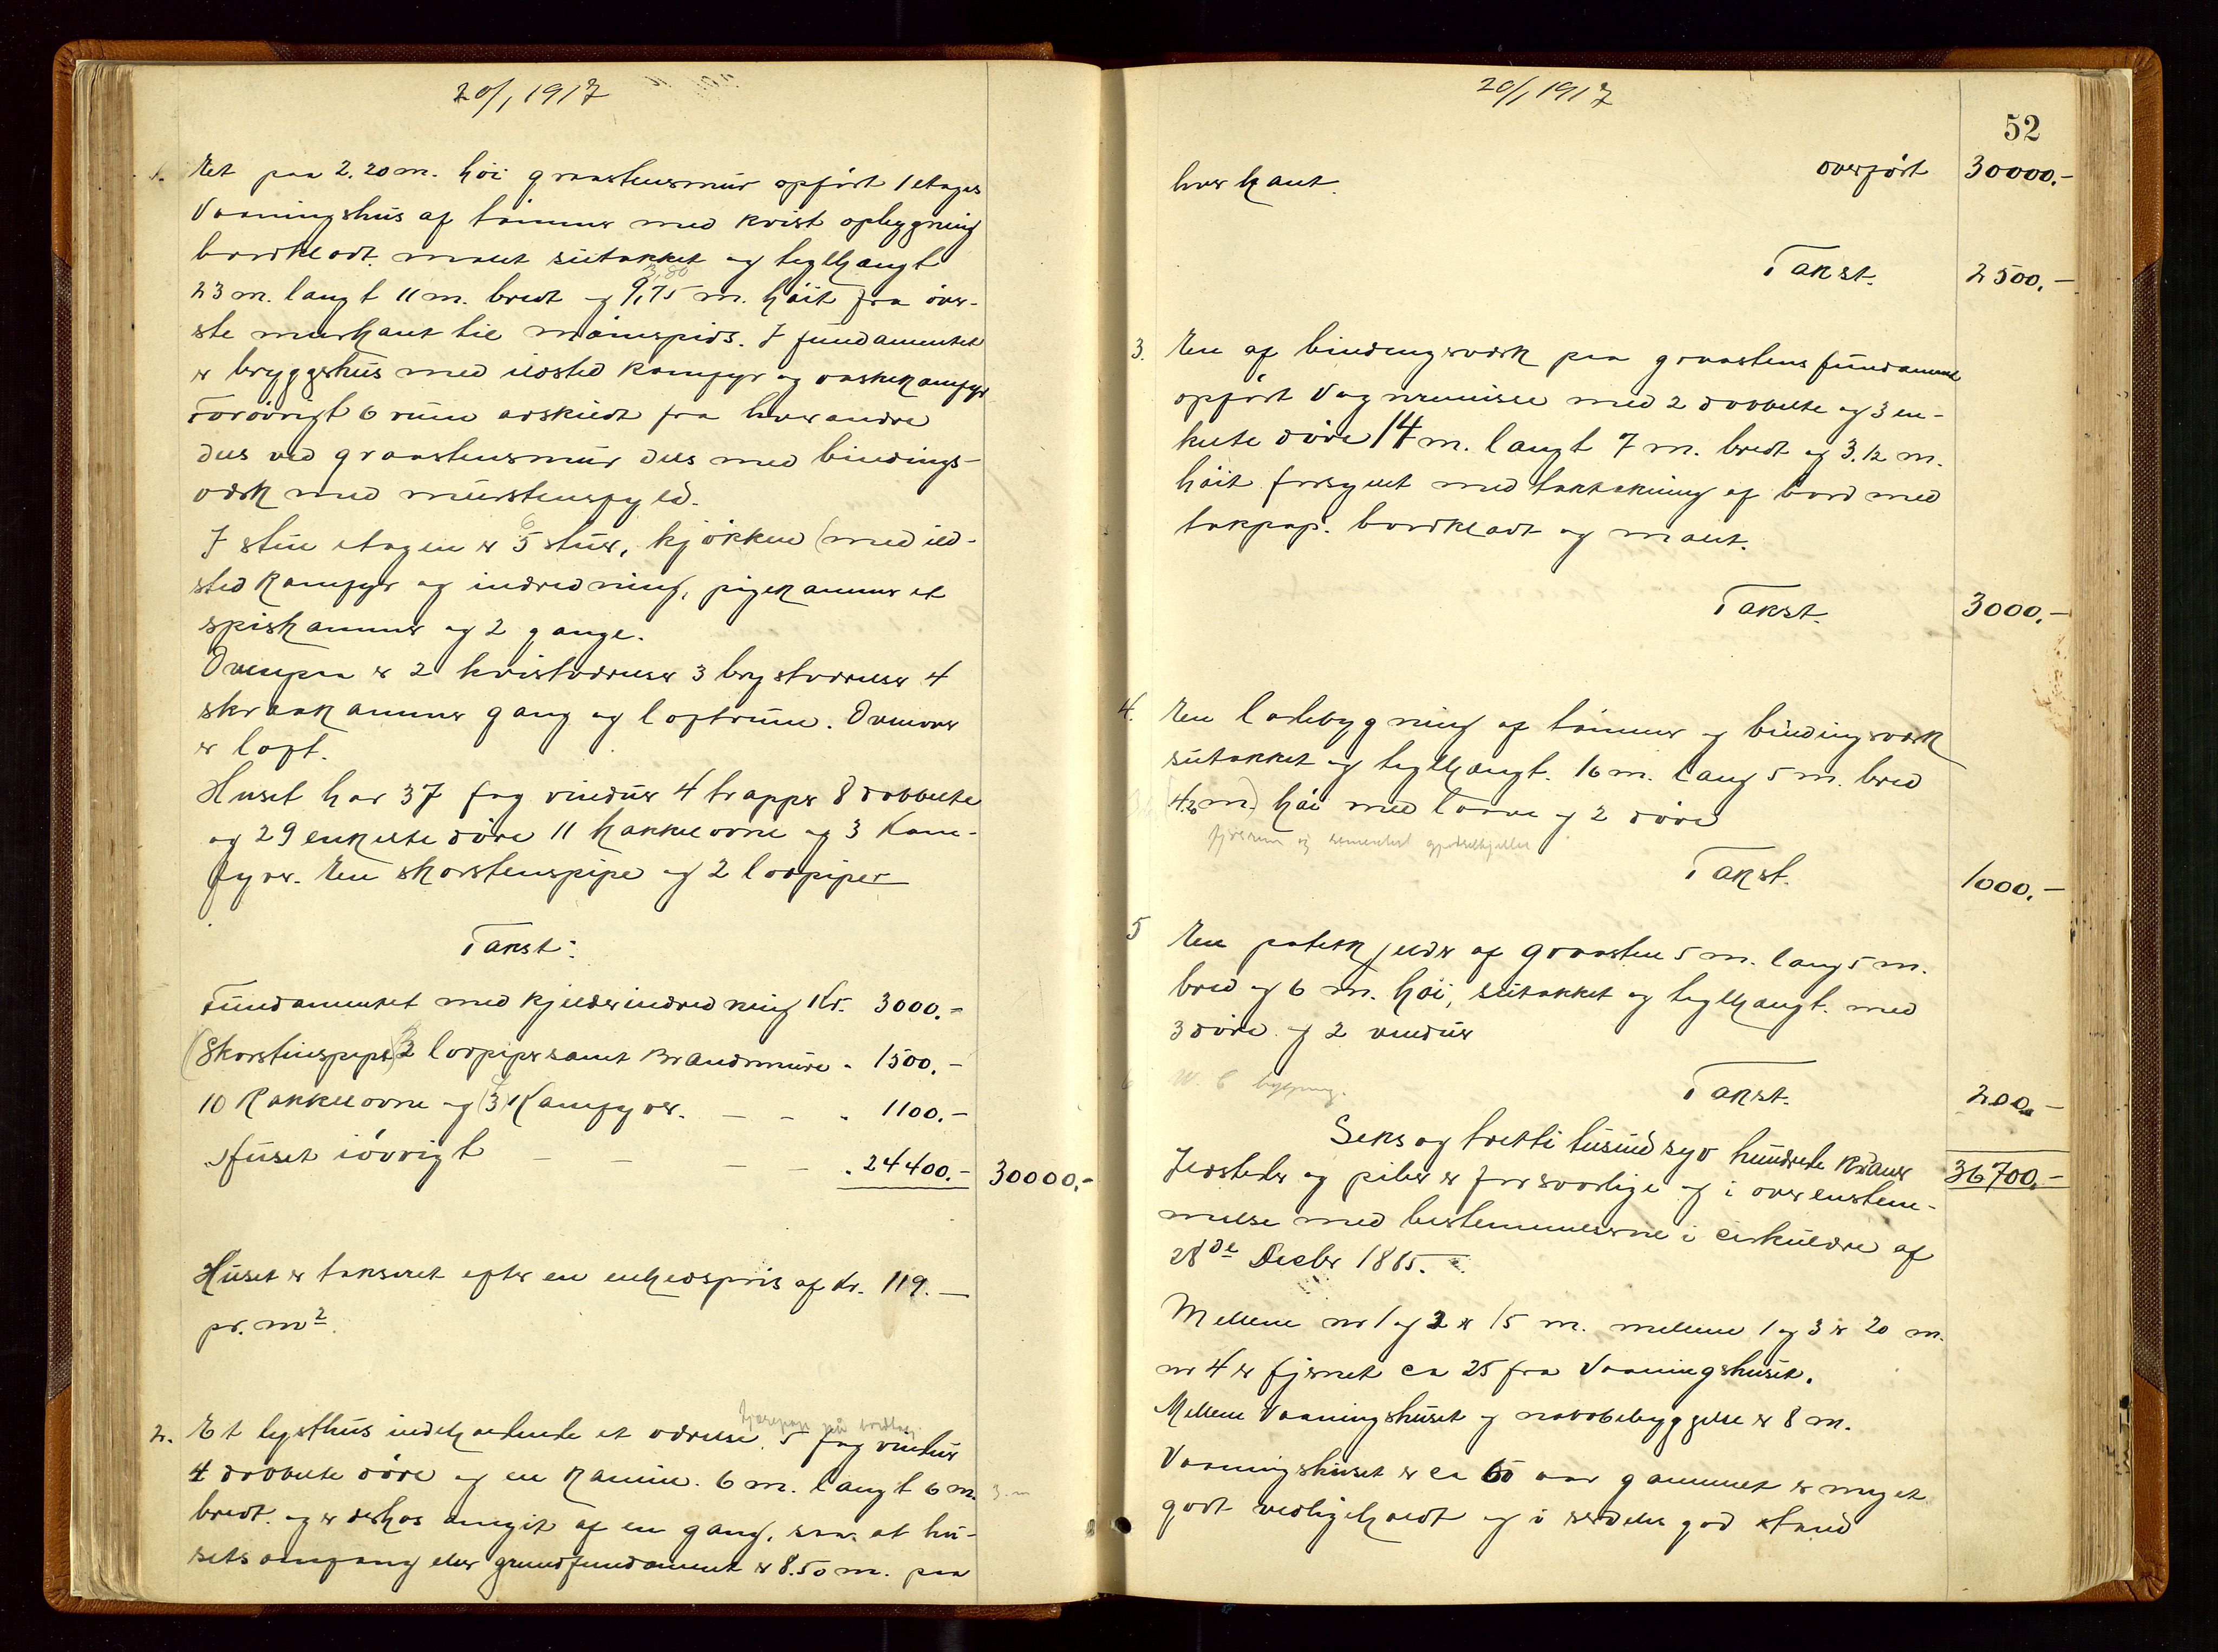 20/1 1917
1. Et paa 2.20 m. høi graastensmur opført 1 etages
Vaaningshus af tømmer med kvist opbygning
bordklædt. malt sutakket og teglhængt
3,80
23 m. langt 11 m. bredt og 9,75 m. høit fra øver-
ste murkant til mønspids. I fundamentet
er bryggerhus med ildsted komfyr og vaskekomfyr
Forøvrigt 6 rum adskildt fra hverandre
dels ved graastensmur dels med bindings-
værk med murstensfyld.
I stue etagen er 5 stuer, kjøkken (med ild-
sted komfyr og indredning, pigekammer et
spiskammer og 2 gange.
Ovenpaa er 2 kvistværelser 3 brystværelser 4
skraakammer gang og loftrum. Ovenover
er loft.
Huset har 37 fag vinduer 4 trapper 8 dobbelte
og 29 enkelte døre 11 kakkelovne og 3 kom-
fyrer. En skorstenspipe og 2 lodpiper
Takst:
Fundamentet med kjelderindredning Kr. 3000.-
(Skorstenspipe) 2 lodpiper samt Brandmure " 1500.-
10 Kakkelovne og (3) Komfyrer. - - " 1100.-
Huset iøvrigt - - - - " 24400.- 30000.-
Huset er takseret efter en enhedspris af Kr. 119.-
pr. m2.
tjærepap på bordtag
2. Et lysthus indeholdende et værelse. 5 fag vinduer
4 dobbelte døre og en kamin. 6 m. langt 6 m. 3. m
bredt. og er derhos omgit af en gang, saa at hu-
sets omfang eller grundfundament er 8.50 m. paa
20/1 1917
52
hver kant. overført 30000.-
Takst. 2500.-
3. En af bindingsværk paa graastens fundament
opført Vognremisse med 2 dobbelte og 3 en-
kelte døre 14 m. langt 7 m. bredt og 3.12 m.
høit forsynet med taktækning af bord med
takpap. bordklædt og malt.
Takst. 3000.-
4. En ladebygning af tømmer og bindingsværk
sutakket og teglhængt. 16 m. lang 5 m. bred
(4.20 m.) høi med laave og 2 døre
fjøsrum og sementert gjødselkjeller
Takst. 1000.-
5 En potetkjelder af graasten 5 m. lang 5 m.
bred og 6 m. høi, sutakket og teglhængt. med
3 døre og 2 vinduer
6 W. C bygning.
Takst. 200.-
Seks og tretti tusind syv hundrede kroner 36700.-
Ildsteder og piber er forsvarlige og i overenstem-
melse med bestemmelserne i cirkulære af
28de Decbr 1865.
Mellem nr 1 og 2 er 15 m. mellem 1 og 3 er 20 m.
nr 4 er fjernet ca 25 fra Vaaningshuset.
Mellem Vaaningshuset og nabobebyggelse er 8 m.
Vaaningshuset er ca 60 aar gammelt er meget
godt vedligeholdt og i særdeles god stand